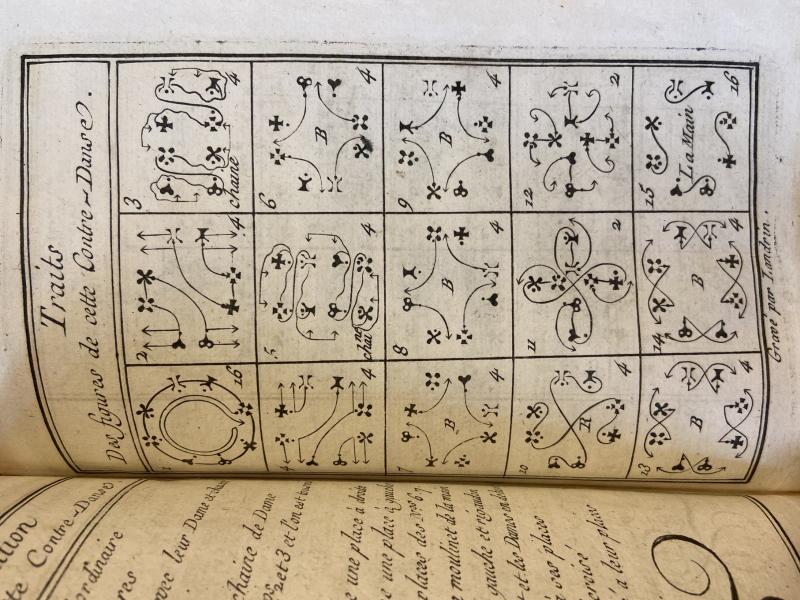 Traits
Des figures de cette Contre-Danse.
1
16
2
4
3
chaine
4
4
4
5
chaine
4
6
B
4
7
B
4
8
B
4
9
B
4
10
B
4
11
2
12
2
13
B
4
14
B
4
15
La Main
16
Gravé par Landrin.
Contre-Danse
ordinaire
avec leur Dame et
chaine de Dame
2 et 3 et l'on est
une place à droite
une place à gauche
places des
moulinet de la main
gauche et
et les
places
à leur place